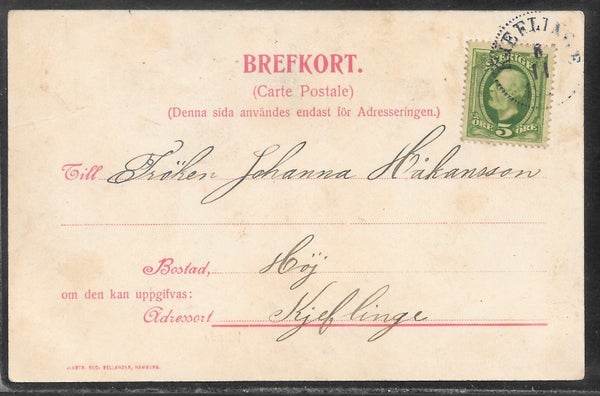 KJEFLINGE
6
11
SVERIGE
5 ÖRE 5 ÖRE
BREFKORT.
(Carte Postale)
(Denna sida användes endast för Adresseringen.)
Till Fröken Johanna Håkansson
Bostad, Höj
om den kan uppgifvas:
Adressort Kjeflinge
BELLANDER, HAMBURG.